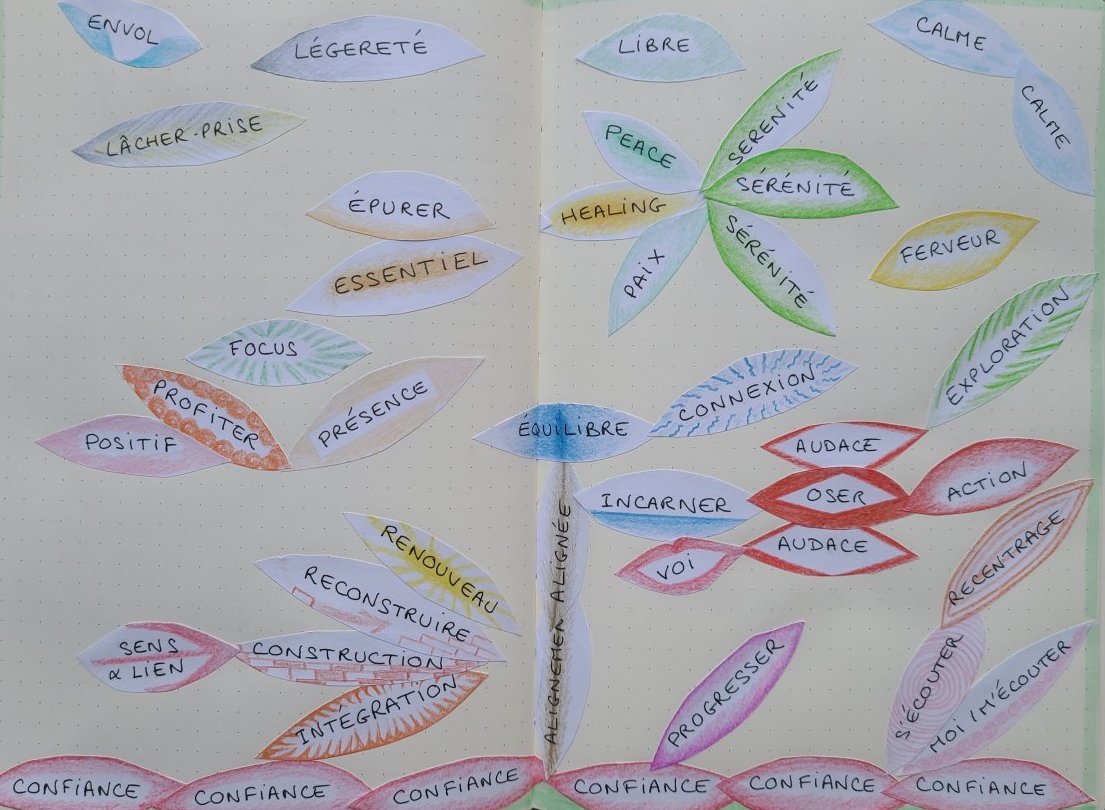 ENVOL
LÉGERETÉ
LÂCHER-PRISE
ÉPURER
ESSENTIEL
FOCUS
PROFITER
PRÉSENCE
POSITIF
RENOUVEAU
RECONSTRUIRE
SENS
& LIEN
CONSTRUCTION
INTÉGRATION
CONFIANCE
CONFIANCE
CONFIANCE
LIBRE
CALME
CALME
PEACE
SERENITÉ
SÉRÉNITÉ
HEALING
SÉRÉNITÉ
PAIX
FERVEUR
EXPLORATION
CONNEXION
ÉQUILIBRE
AUDACE
INCARNER
OSER
ACTION
AUDACE
VOI
RECENTRAGE
ALIGNEMER ALIGNÉE
PROGRESSER
S'ÉCOUTER
MOI / M'ÉCOUTER
CONFIANCE
CONFIANCE
CONFIANCE